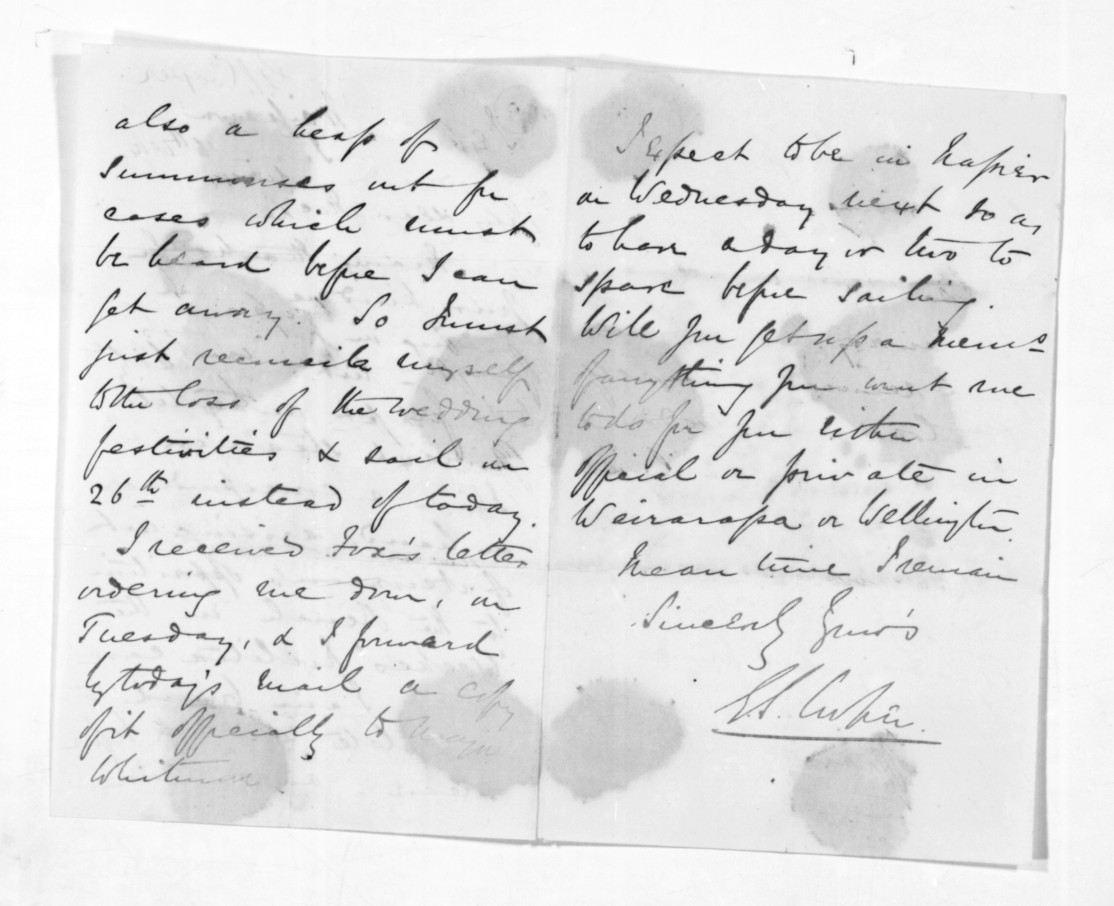 also a heap of
Summonses out for
cases which must
be heard before I can
get away. So I must
just reconcile myself
to the loss of the wedding
festivities & sail on
26th instead of today.
I received Fox's letter
ordering me down, on
Tuesday, & I forward
by today's mail a copy
of it officially to Major
Whitmore
I expect to be in Napier
on Wednesday next so as
to have a day or two to
spare before sailing.
Will you get up a memo
of anything you want me
to do for you either
official or private in
Wairarapa or Wellington.
Mean time I remain
Sincerely Yours
G.S. Cooper.